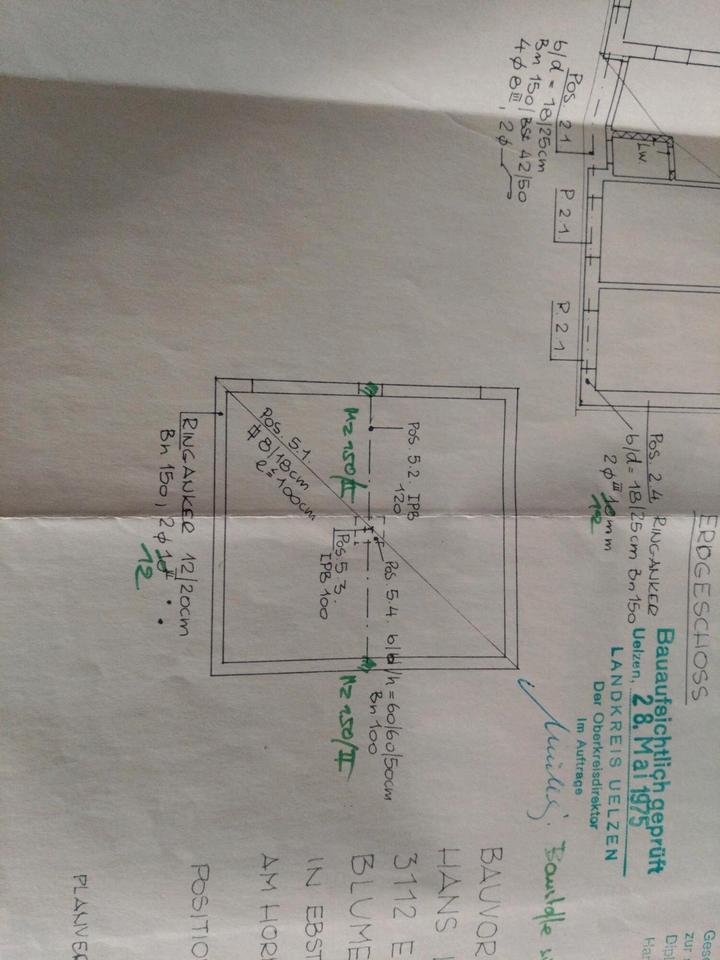 ERDGESCHOSS
Pos. 2.1
b/d = 18/25cm
Bn 150/BSt 42/50
4 ϕ 8 III, 2ϕ
P. 2.1
P. 2.1
Lw.
Pos. 2.4. RINGANKER
b/d = 18/25cm Bn 150
2 ϕ III 10 mm
12
Bauaufsichtlich geprüft
Uelzen, 28. Mai 1975
LANDKREIS UELZEN
Der Oberkreisdirektor
Im Auftrage
Pos. 5.1.
ϕ 8/18cm
l = 100cm
Mz 150/II
Pos. 5.2. IPB
120
Pos. 5.3.
IPB 100
Pos. 5.4. b/d/h = 60/60/50cm
Bn 100
Mz 150/II
RINGANKER 12/20cm
Bn 150, 2 ϕ 10 III
12
BAUVOR
HANS
3112 E
BLUME
IN EBST
AM HOR
POSITIO
PLANVER
Ges
zur
Dipl
Ha